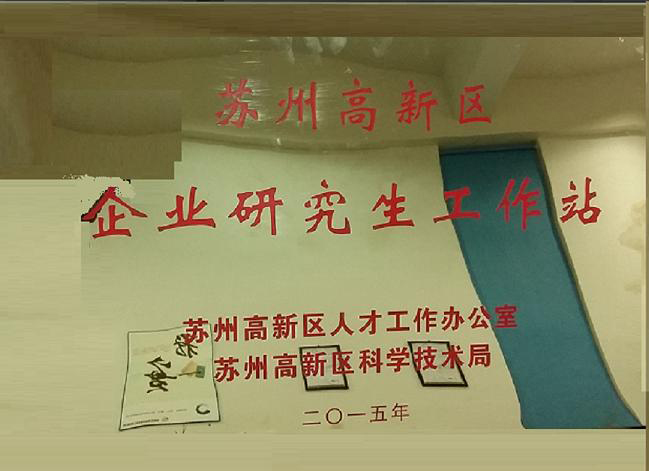 苏州高新区
企业研究生工作站
苏州高新区人才工作办公室
苏州高新区科学技术局
二〇一五年